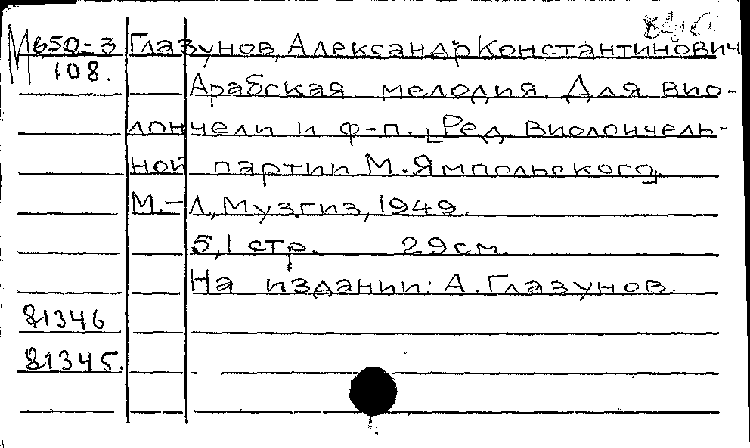 М650-3 Глазунов, Александр Константинович
108. Арабская мелодия. Для вио-
лончели и ф-п. [Ред. виолончель-
ной партии М. Ямпольского]
М.-Л., Музгиз, 1949.
5,1 стр. 29 см.
На издании: А. Глазунов
81346
81345.